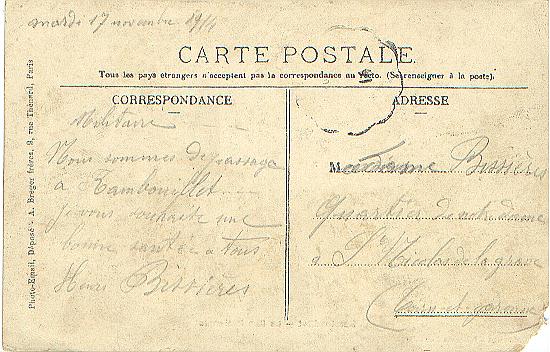 mardi 17 novembre 1914
CARTE POSTALE
Tous les pays étrangers n'acceptent pas la correspondance au recto. (Se renseigner à la poste).
CORRESPONDANCE
Militaire
Nous sommes de passage
à Rambouillet
je vous souhaite une
bonne santé à tous
Henri Bissières
ADRESSE
Madame Bissières
Quartier de notre dame
à St Nicolas de la grave
(Tarn et garonne)
Photo-Email, Déposé - A. Breger frères, 9, rue Thénard, Paris